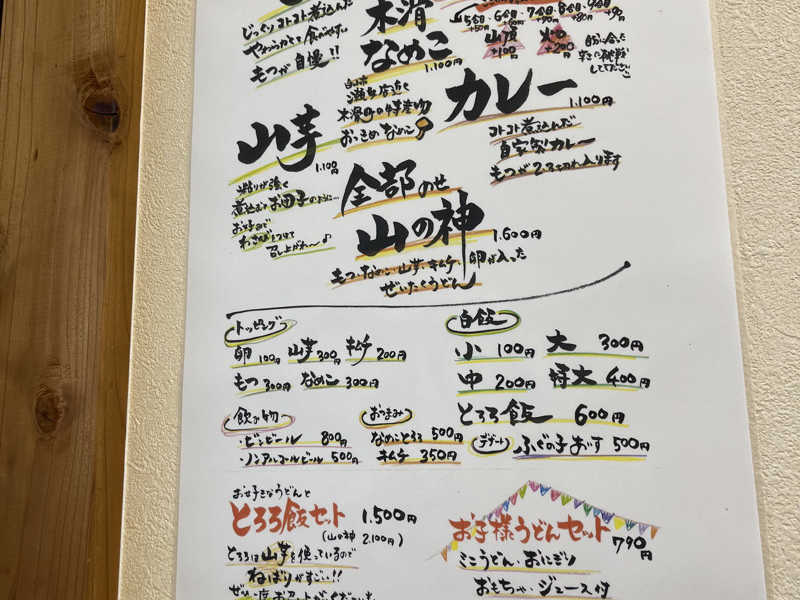 じっくりコトコト煮込んだ
やわらかくて食べやすい
もつが自慢!!
木滑
なめこ
1.100円
白山市
木滑町の特産物
おっきめなめこ
5合目 6合目 7合目 8合目 9合目
+50円 +60円 +70円 +80円 +90円
山頂
+100円
火口
+200円
自分に合った
辛さに挑戦
してください
カレー
1.100円
コトコト煮込んだ
自家製カレー
もつが2.3切れ入ります
山芋
1.100円
粘りが強く
煮込むとお団子のように…
お好みで
わさびをつけて
召し上がれ〜♪
全部のせ
山の神
1.600円
もつ・なめこ・山芋・キムチ・卵が入った
ぜいたくうどん
トッピング
卵 100円 山芋 300円 キムチ 200円
もつ 300円 なめこ 300円
白飯
小 100円 大 300円
中 200円 特大 400円
とろろ飯 600円
飲み物
・ビンビール 800円
・ノンアルコールビール 500円
おつまみ
なめことろろ 500円
キムチ 350円
デザート ふぐの子あいす 500円
お好きなうどんと
とろろ飯セット 1.500円
(山の神 2.100円)
とろろは山芋を使っているので
ねばりがすごい!!
お子様うどんセット
790円
ミニうどん・おにぎり
おもちゃ・ジュース付